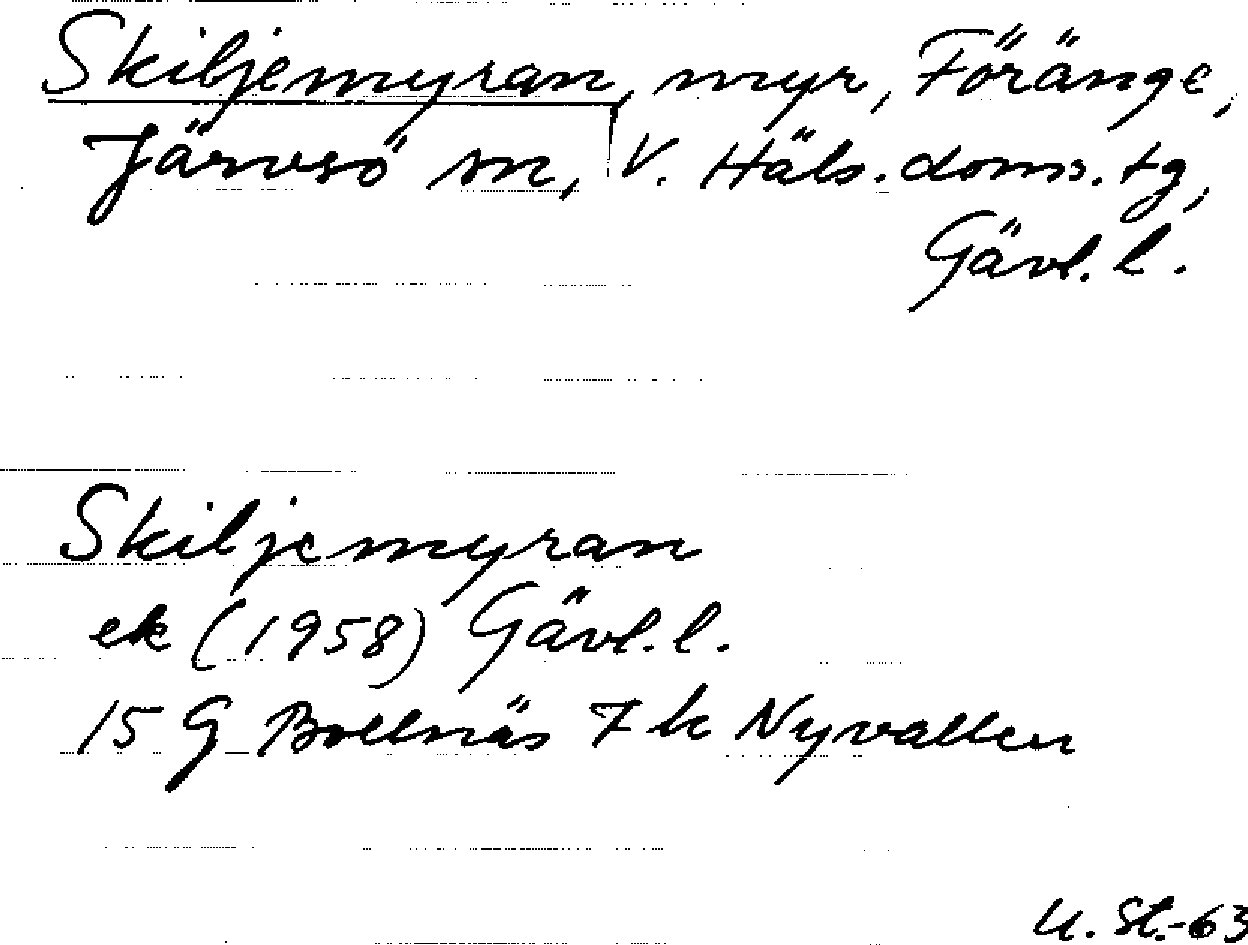 Skiljemyran, myr, Föränge,
Järvsö sn, V. Häls. doms. tg,
Gävl. l.
Skiljemyran
ek (1958) Gävl. l.
15 G Bollnäs 7 h Nyvallen
U. St.-63